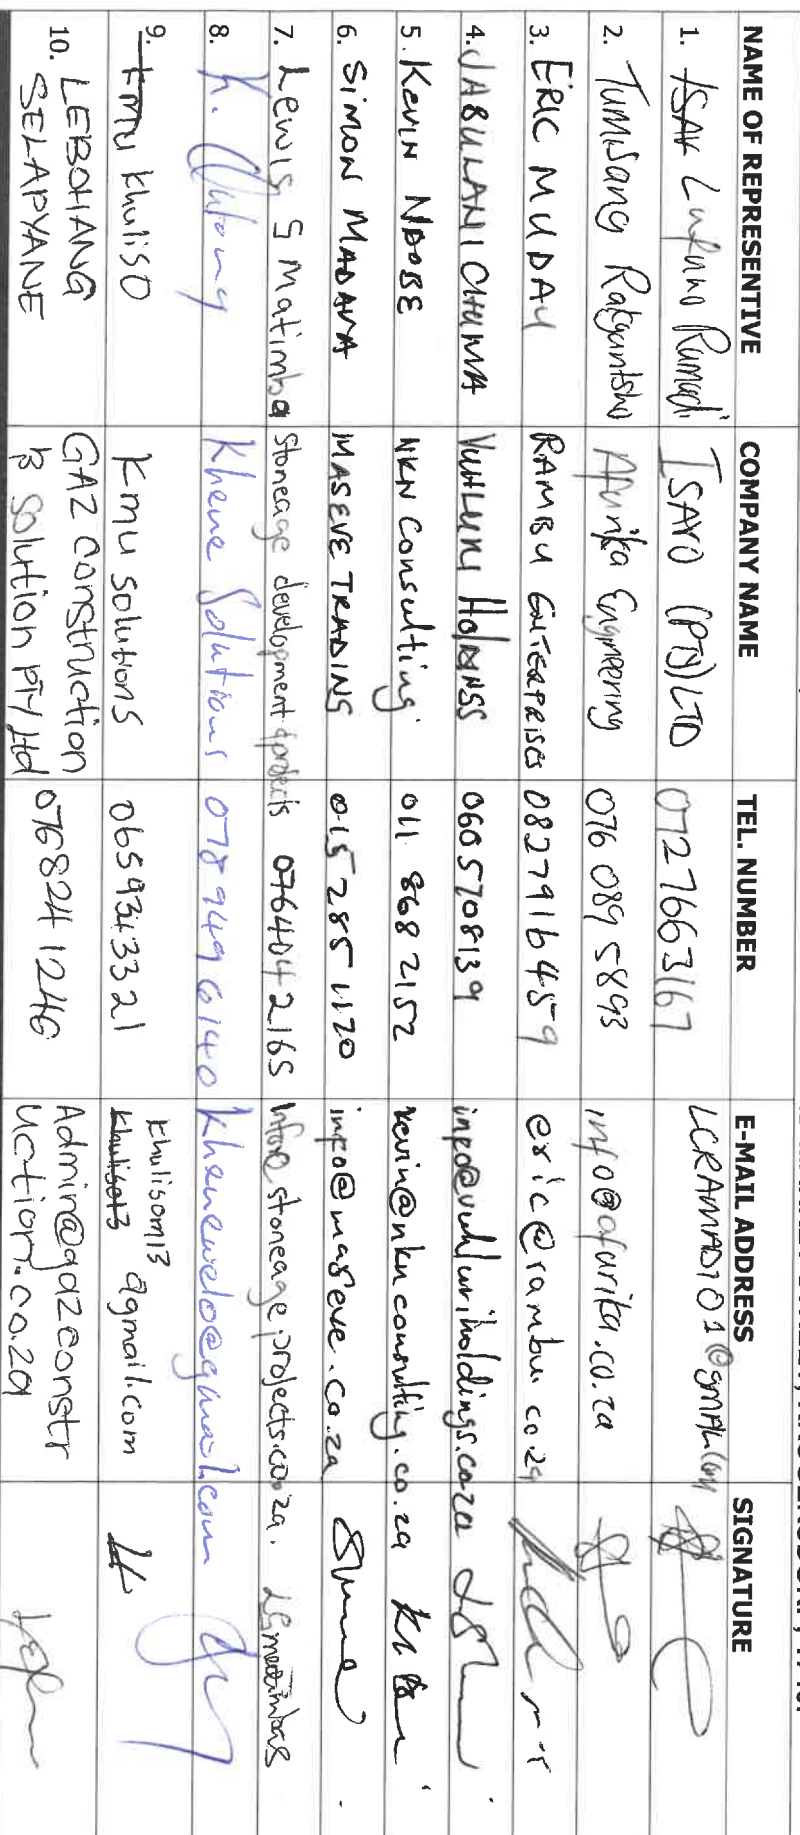 NAME OF REPRESENTIVE COMPANY NAME TEL. NUMBER E-MAIL ADDRESS SIGNATURE
1. ISAAK Lufuno Ramadi ISAYO (PTY) LTD 0727663167 LCRAMADI01@gmail.com
2. Tumisang Rakgantsho Afurika Engineering 076 089 5893 info@afurika.co.za
3. ERIC MUDAU RAMBU ENTERPRISES 0827916459 eric@rambu.co.za
4. JABULANI CHUMA 0605708139 info@vuhluriholdings.co.za
5. KEVIN NDOBE NKN Consulting 011 868 2152 kevin@nknconsulting.co.za
6. SIMON MADAVA MASEVE TRADING 015 285 1120 info@maseve.co.za
7. Lewis S Matimba Stoneage development & projects 0764042165 info@stoneageprojects.co.za.
8. K. Khene Solutions 0789496140 khenewelo@gmail.com
9. KMU Khuliso Kmu solutions 0659343321 khulisom13
Khuliso13 @gmail.com
10. LEBOHANG GAZ Construction 0768241246 Admin@gazconstr
SELAPYANE & solution PTY Ltd uction.co.za